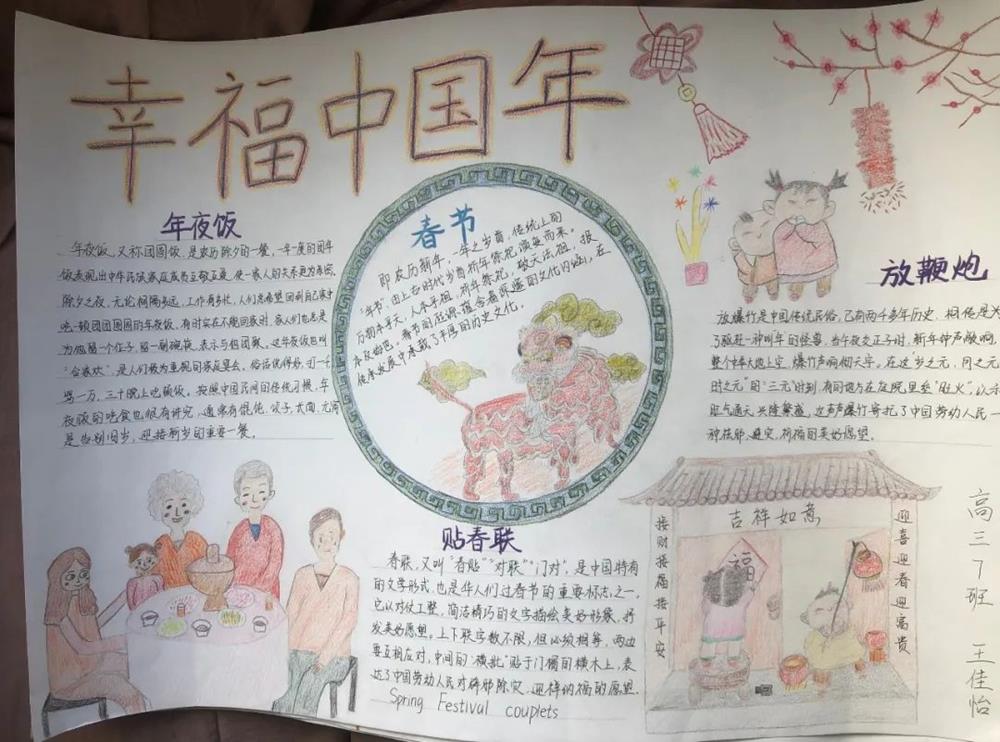 幸福中国年
年夜饭
年夜饭，又称团圆饭，是农历除夕的一餐，一年一度的团年
饭表现出中华民族家庭成员互敬互爱，使一家人的关系更为紧密
除夕之夜，无论相隔多远，工作有多忙，人们总希望回到自己家中
吃一顿团团圆圆的年夜饭，有时实在不能回家时，家人们也总是
为他留一个位子，留一副碗筷，表示与他团聚。这年夜饭也叫
"合家欢"，是人们极为重视的家庭宴会。俗话说得好，打一千
骂一万，三十晚上吃顿饭。按照中国民间的传统习惯，年
夜饭的吃食也很有讲究，通常有馄饨、饺子、长面、元宵
是告别旧岁，迎接新岁的重要一餐。
春节
即农历新年，一年之岁首，传统上的
"年节"。由上古时代岁首祈年祭祀演变而来。
万物本乎天，人本乎祖，祈年祭祀，敬天法祖，报
本反始也。春节的起源蕴含着深邃的文化内涵，在
传承发展中承载了丰厚的历史文化。
放鞭炮
放爆竹是中国传统民俗，已有两千多年历史。相传是为
了驱赶一种叫年的怪兽。当午夜交正子时，新年钟声敲响，
整个中华大地上空，爆竹声响彻天宇。在这"岁之元、月之元
时之元"的"三元"时刻，有的地方在庭院里垒"旺火"，以示
旺气通天，兴隆繁盛。这声声爆竹寄托了中国劳动人民一
种祛邪、避灾、祈福的美好愿望。
贴春联
春联，又叫"春贴""对联""门对"，是中国特有
的文学形式，也是华人们过春节的重要标志之一。
它以对仗工整、简洁精巧的文字描绘美好形象，抒
发美好愿望。上下联字数不限，但必须相等，两边
要互相应对，中间的"横批"贴于门楣的横木上，表
达了中国劳动人民对辟邪除灾、迎祥纳福的愿望。
Spring Festival couplets
吉祥如意
接财接福接平安
迎喜迎春迎富贵
福
高三7班 王佳怡